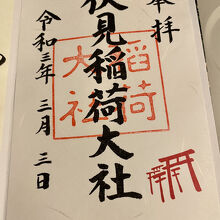 奉拝
伏見稲荷大社
令和三年三月三日
稲荷
大社